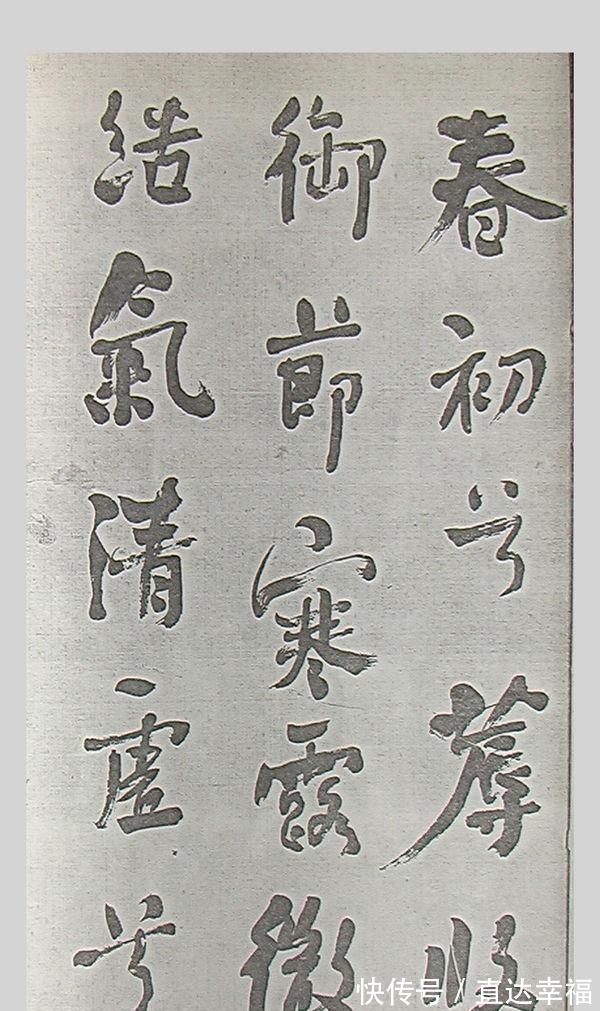 春初兮蓐收
御節寒露微
結氣清虛兮
快传号 / 直达幸福